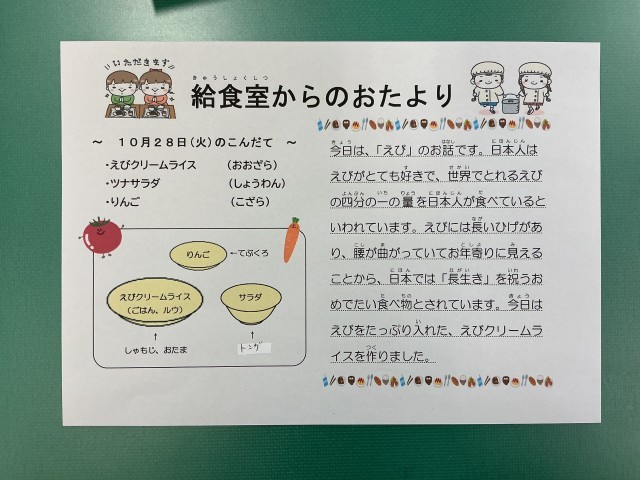 いただきます
きゅうしょくしつ
給食室からのおたより
～ 10月28日(火)のこんだて ～
・えびクリームライス (おおざら)
・ツナサラダ (しょうわん)
・りんご (こざら)
りんご ←てぶくろ
えびクリームライス
(ごはん、ルウ)
サラダ
↑ ↑
しゃもじ、おたま トング
今日は、「えび」のお話です。日本人は
えびがとても好きで、世界でとれるえび
の四分の一の量を日本人が食べていると
いわれています。えびには長いひげがあ
り、腰が曲がっていてお年寄りに見える
ことから、日本では「長生き」を祝うお
めでたい食べ物とされています。今日は
えびをたっぷり入れた、えびクリームラ
イスを作りました。